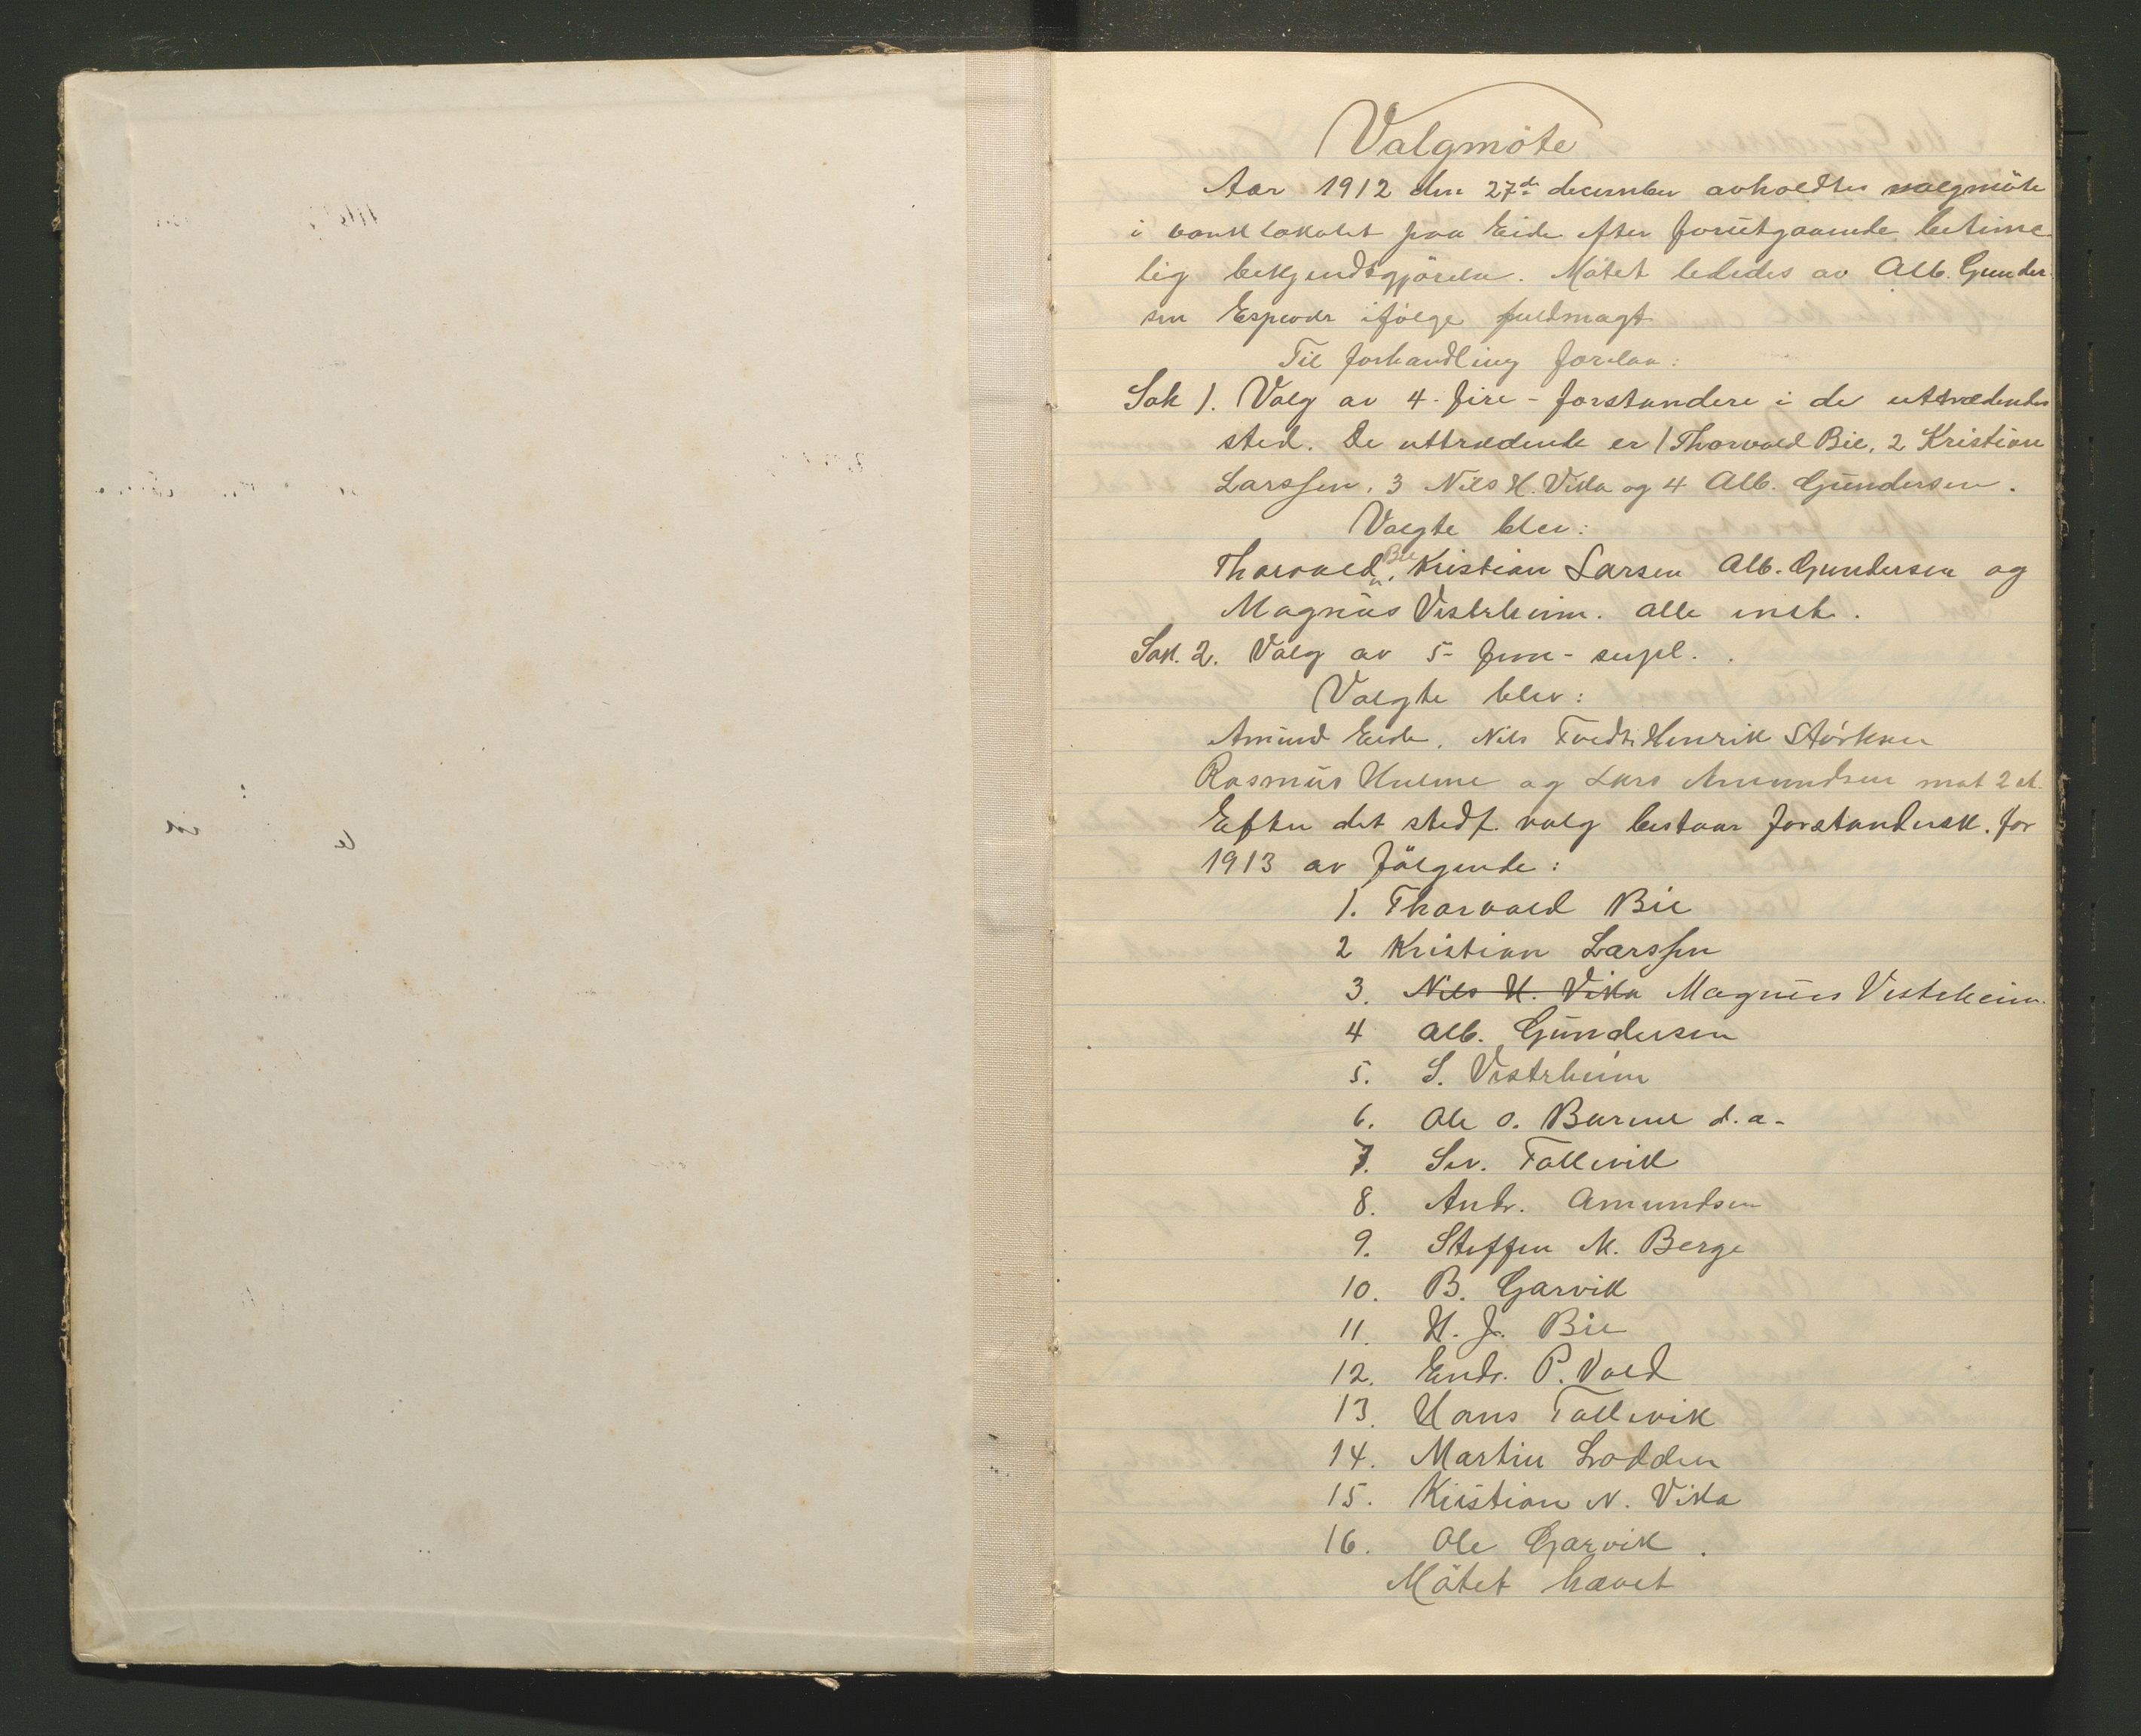 Valgmöte
Aar 1912 den 27de december avholdtes valgmöte
i banklokalet paa Eide efter forutgaaende betime
lig bekjendtgjörelse. Mötet lededes av Alb. Gunder
sen Espevær ifölge fuldmagt
Til forhandling forelaa:
Sak 1. Valg av 4-fire-forstandere i de uttrædendes
sted. De uttrædende er 1 Thorvald Bie, 2 Kristian
Larssen, 3 Nils H. Vika og 4 Alb. Gundersen.
Valgte blev:
Thorvald Bie, Kristian Larsen Alb. Gundersen og
Magnus Vestrheim. alle enst.
Sak. 2. Valg av 5-fem-supl.
Valgte blev:
Amund Eide, Nils Tvedt, Henrik Størksen
Rasmus Hulme og Lars Amundsen mot 2 st.
Efter det stedf. valg bestaar forstandersk. for
1913 av fölgende:
1. Thorvald Bie
2 Kristian Larssen
3. Nils H. Vika Magnus Vestrheim.
4 Alb. Gundersen
5. S. Vestrheim
6. Ole O. Burme d.a.
7. Sev. Tollevik
8. Andr. Amundsen
9. Steffen M. Berge
10. B. Garvik
11. H. J. Bie
12. Endr. P. Vold
13. Hans Tollevik
14. Martin Lodden
15. Kristian N. Vika
16. Ole Garvik.
Mötet hævet